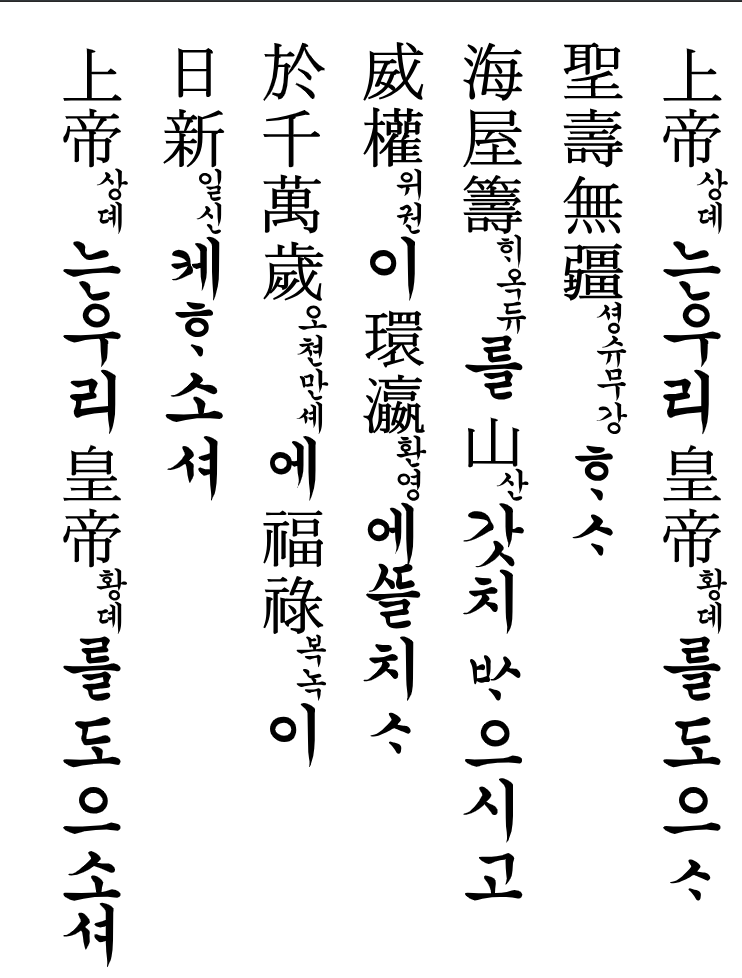 上帝상뎨는우리 皇帝황뎨를도으ᄉᆞ
聖壽無疆셩슈무강ᄒᆞᄉᆞ
海屋籌ᄒᆡ옥듀를 山산갓치 ᄡᆞ으시고
威權위권이 環瀛환영에ᄯᅳᆯ치ᄉᆞ
於千萬歲오쳔만셰에 福祿복녹이
日新일신케ᄒᆞ소셔
上帝상뎨는우리 皇帝황뎨를도으소셔